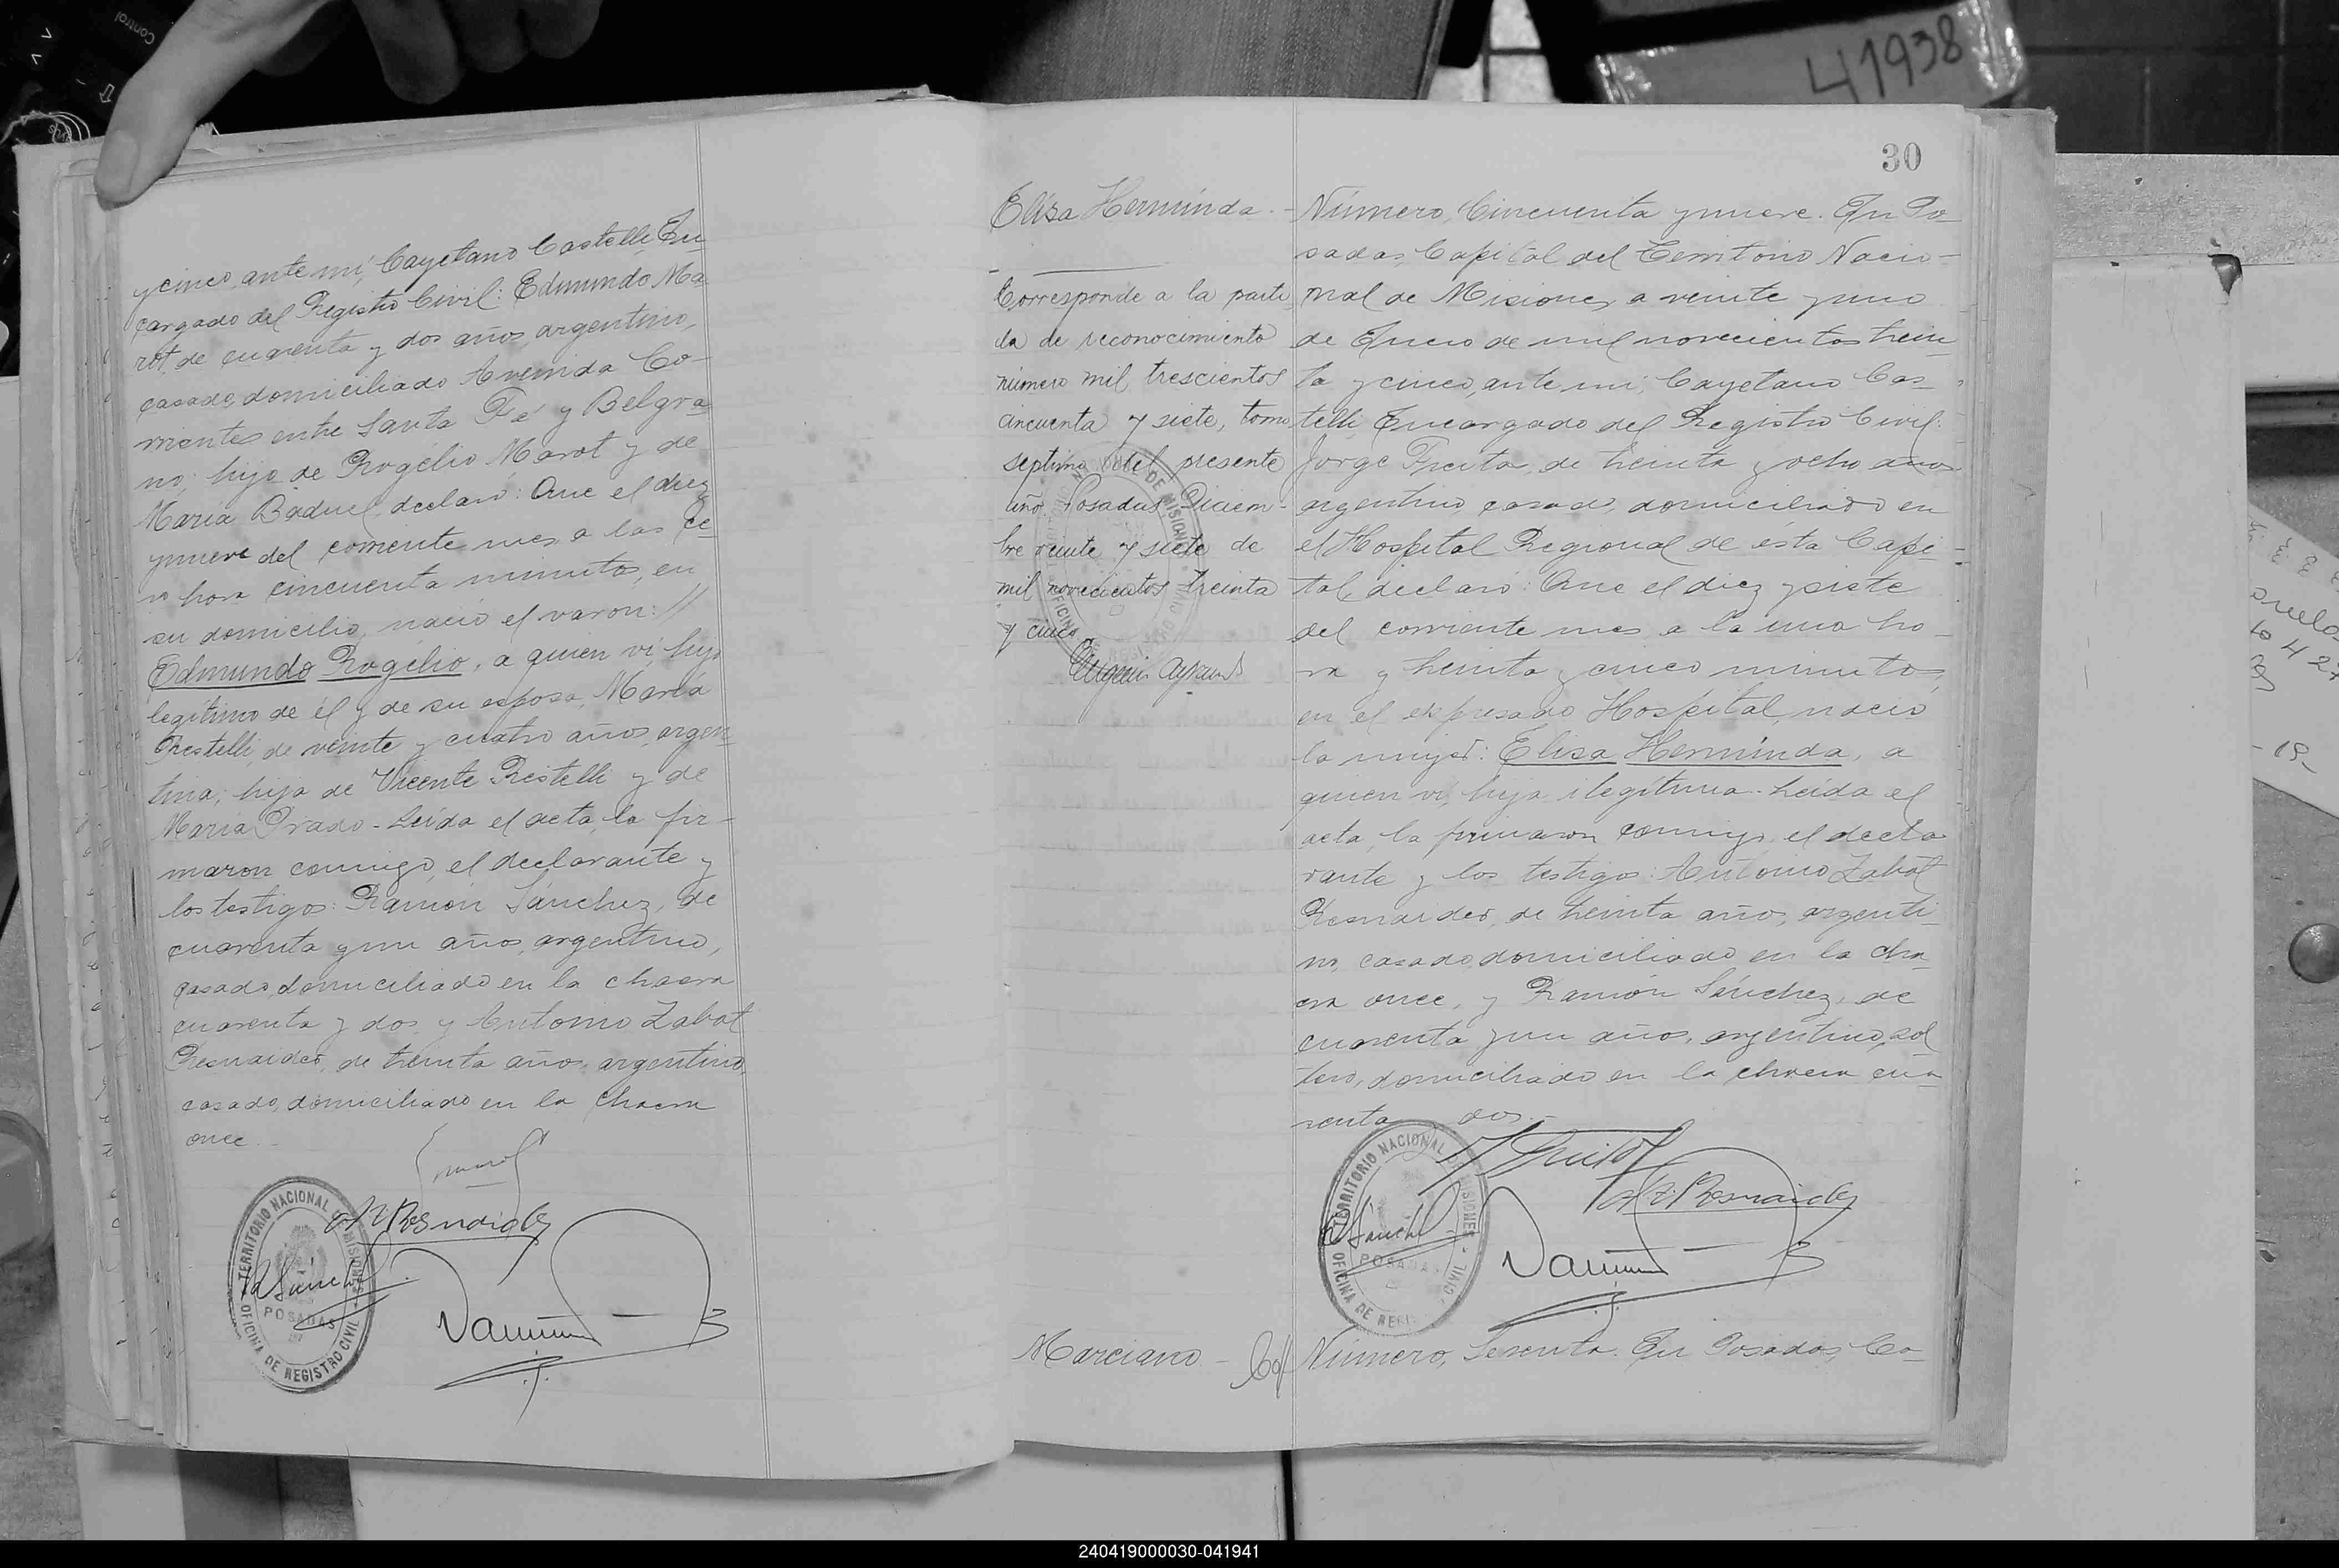 Control
41938
y cinco, ante mí, Cayetano Castelli, En-
cargado del Registro Civil: Edmundo Ma-
rot, de cuarenta y dos años, argentino,
casado, domiciliado Avenida Co-
rrientes entre Santa Fé y Belgra-
no, hijo de Rogelio Marot y de
María Baduel, declaró: Que el diez
y nueve del corriente mes a las ce-
ro hora cincuenta minutos, en
su domicilio, nació el varon: //
Edmundo Rogelio, a quien vi, hijo
legítimo de él y de su esposa, María
Restelli, de veinte y cuatro años, argen-
tina; hija de Vicente Restelli y de
María Prado - Leída el acta, la fir-
maron conmigo, el declarante y
los testigos: Ramón Sánchez, de
cuarenta y un años, argentino,
casado, domiciliado en la chacra
cuarenta y dos y Antonio Zabat
Resnaider, de treinta años, argentino,
casado, domiciliado en la chacra
once.
Resnaider
Sánchez
TERRITORIO NACIONAL DE MISIONES
POSADAS
OFICINA DE REGISTRO CIVIL
30
Elisa Herminda. -
Corresponde a la parti
da de reconocimiento
número mil trescientos
cincuenta y siete, tomo
septimo del presente
año. Posadas Diciem-
bre veinte y siete de
mil novecientos treinta
y cinco.
Número, Cincuenta y nueve. En Po-
sadas, Capital del Territorio Nacio-
nal de Misiones, a veinte y uno
de Enero de mil novecientos trein-
ta y cinco, ante mi, Cayetano Cas-
telli, Encargado del Registro Civil:
Jorge Freita, de treinta y ocho años
argentino, casado, domiciliado en
el Hospital Regional de ésta Capi-
tal, declaró: Que el diez y siete
del corriente mes a la una ho-
ra y treinta y cinco minutos,
en el expresado Hospital nació
la mujer: Elisa Herminda, a
quien vi, hija ilegítima. Leída el
acta, la firmaron conmigo, el decla-
rante y los testigos: Antonio Zabat
Resnaider, de treinta años, argenti-
no, casado, domiciliado en la cha-
cra once, y Ramón Sánchez, de
cuarenta y un años, argentino, sol-
tero, domiciliado en la chacra cua-
renta dos.-
Resnaider
Sánchez
TERRITORIO NACIONAL DE MISIONES
POSADAS
OFICINA DE REGISTRO CIVIL
Marciano -
Número, Sesenta. En Posadas, Ca-
240419000030-041941